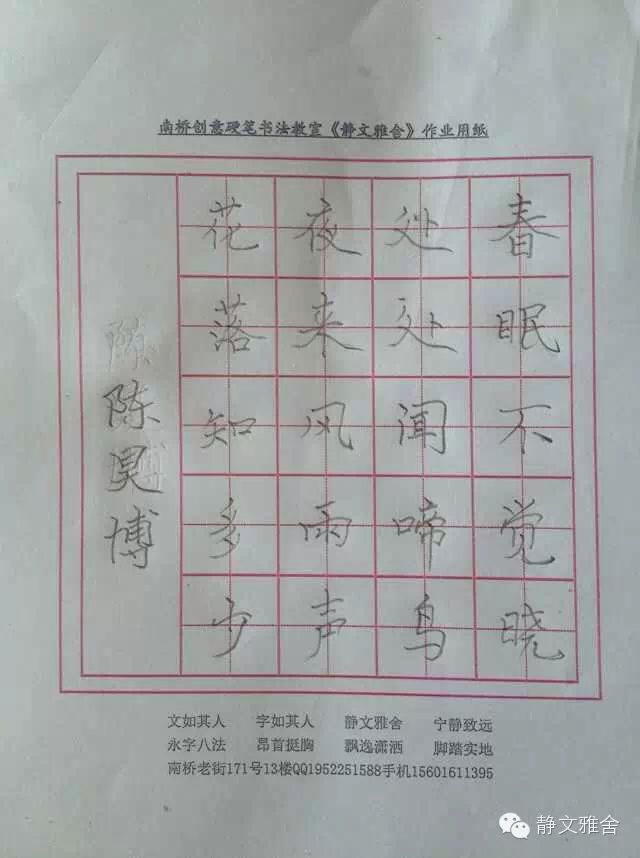 南桥创意硬笔书法教室《静文雅舍》作业用纸
春眠不觉晓
处处闻啼鸟
夜来风雨声
花落知多少
陈昊博
文如其人 字如其人 静文雅舍 宁静致远
永字八法 昂首挺胸 飘逸潇洒 脚踏实地
南桥老街171号13楼QQ1952251588手机15601611395
静文雅舍